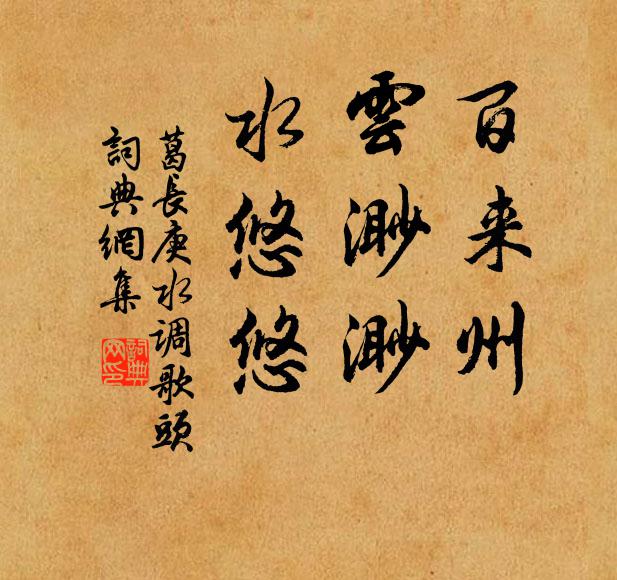 百来州
雲渺渺
水悠悠
葛長庚水调歌頭
詞典網集
詞典
网印